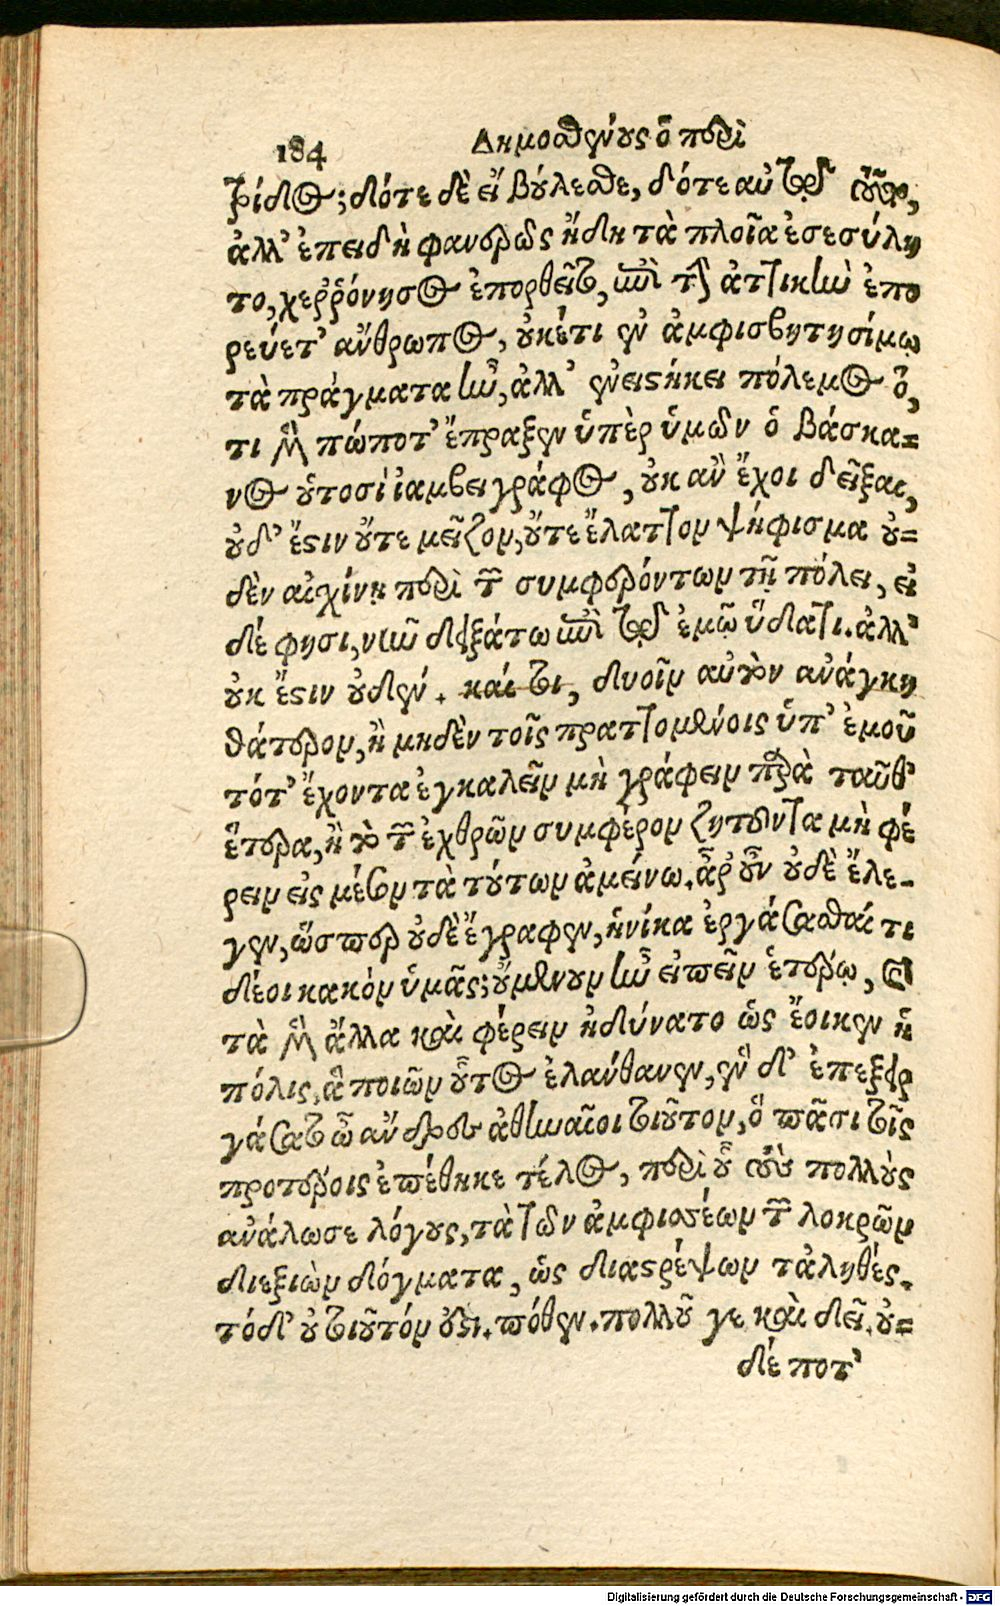 184 Δημοσθένους ὁ περὶ
τρίδος; δότε δὲ εἰ βούλεσθε, δότε αὐτῷ τοῦτο,
ἀλλ' ἐπειδὴ φανερῶς ἤδη τὰ πλοῖα ἐσεσύλη
το, χερρόνησος ἐπορθεῖτο, ἐπὶ τὴν ἀττικὴν ἐπο
ρεύετ' ἄνθρωπος, οὐκέτι ἐν ἀμφισβητησίμῳ
τὰ πράγματα ἦν, ἀλλ' ἐνειστήκει πόλεμος ὅ,
τι μὲν πώποτ' ἔπραξεν ὑπὲρ ὑμῶν ὁ βάσκα=
νος οὑτοσὶ ἰαμβειγράφος, οὐκ ἂν ἔχοι δεῖξαι,
οὐδ' ἔστιν οὔτε μεῖζον, οὔτε ἔλαττον ψήφισμα οὐ=
δὲν αἰσχίνῃ περὶ τῶν συμφερόντων τῇ πόλει, εἰ
δέ φησι, νῦν δειξάτω ἐπὶ τῷ ἐμῷ ὕδατι. ἀλλ'
οὐκ ἔστιν οὐδέν. καί τοι, δυοῖν αὐτὸν ἀνάγκη
θάτερον, ἢ μηδὲν τοῖς πραττομένοις ὑπ' ἐμοῦ
τότ' ἔχοντα ἐγκαλεῖν μὴ γράφειν παρὰ ταῦθ'
ἕτερα, ἢ τὸ τῶν ἐχθρῶν συμφέρον ζητοῦντα μὴ φέ
ρειν εἰς μέσον τὰ τούτων ἀμείνω. ἆρ' οὖν οὐδὲ ἔλε-
γεν, ὥσπερ οὐδὲ ἔγραφεν, ἡνίκα ἐργάσασθαί τι
δέοι κακὸν ὑμᾶς; οὔμενουν ἦν εἰπεῖν ἑτέρῳ, καὶ
τὰ μὲν ἄλλα καὶ φέρειν ἠδύνατο ὡς ἔοικεν ἡ
πόλις, ἃ ποιῶν οὗτος ἐλάνθανεν, ἓν δ' ἐπεξειρ
γάσατο ὦ ἄνδρες ἀθηναῖοι τοιοῦτον, ὃ πᾶσι τοῖς
προτέροις ἐπέθηκε τέλος, περὶ οὗ τοὺς πολλοὺς
ἀνάλωσε λόγους, τὰ τῶν ἀμφισσέων τῶν λοκρῶν
διεξιὼν δόγματα, ὡς διαστρέψων τἀληθές.
τὸ δ' οὐ τοιοῦτόν ἐστι. πόθεν. πολλοῦ γε καὶ δεῖ. οὐ=
δέ ποτ'
Digitalisierung gefördert durch die Deutsche Forschungsgemeinschaft - DFG